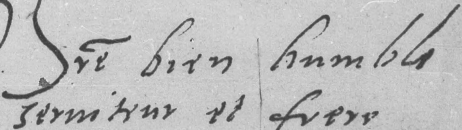 Vre bien humble
serviteur et frere